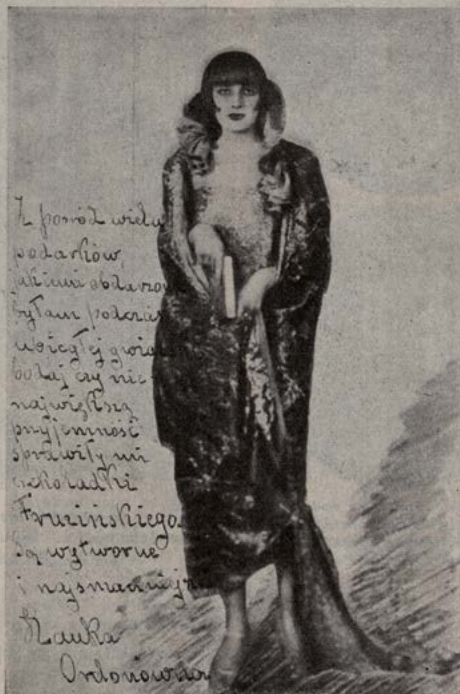 Z pośród wielu
podarków,
jakiemi obdarzona
byłam podczas
ubiegłej gwiazdki
bodaj czy nie
największą
przyjemność
sprawiły mi
czekoladki
Fruzińskiego.
Są wytworne
i najsmaczniejsze
Hanka
Ordonówna